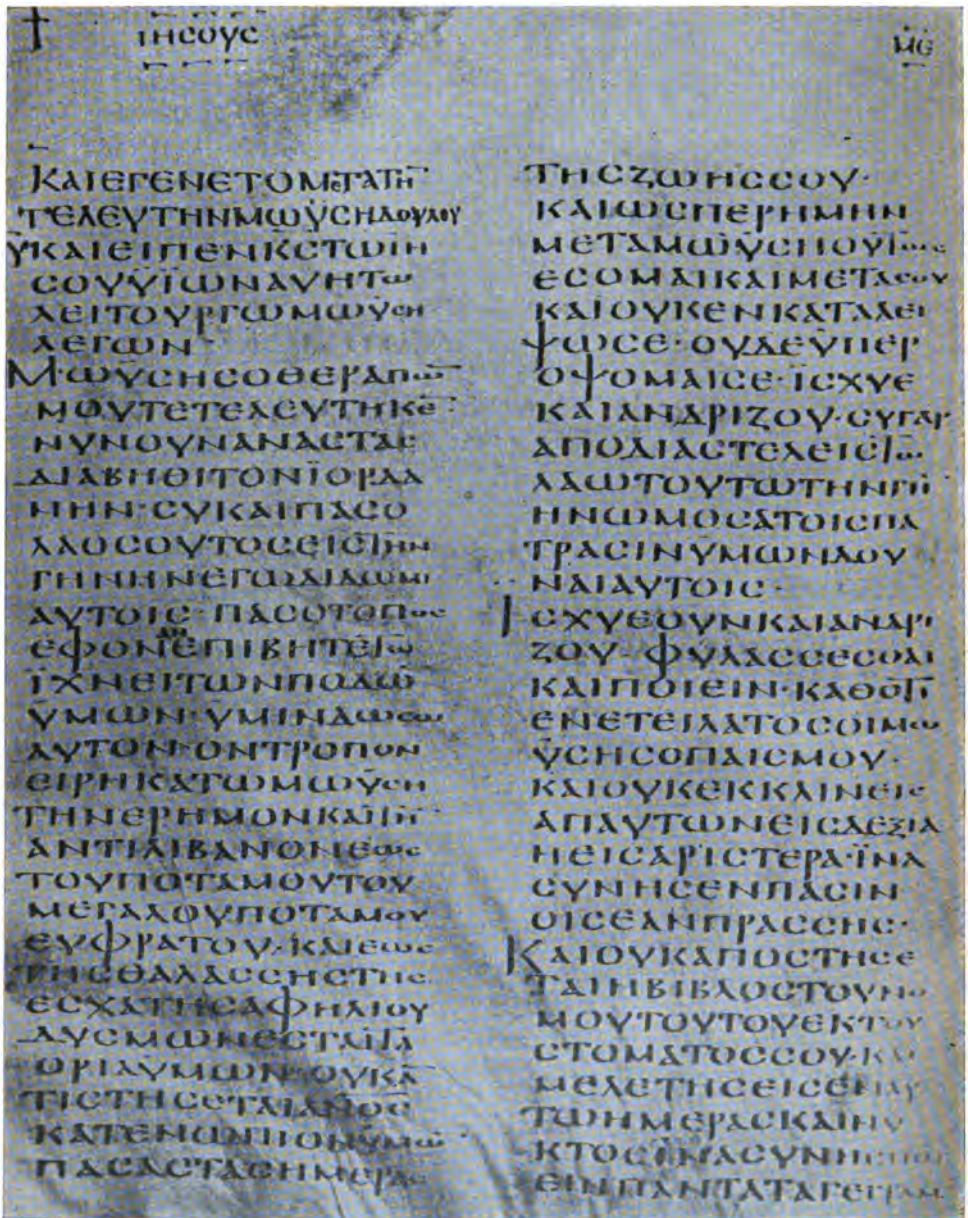 ΙΗϹΟΥϹ
ΜΘ
ΚΑΙΕΓΕΝΕΤΟΜΕΤΑΤΗ̅
ΤΕΛΕΥΤΗΝΜΩΫϹΗΔΟΥΛΟΥ
ΚΥΚΑΙΕΙΠΕΝΚϹΤΩΙΗ
ϹΟΥΥΪΩΝΑΥΗΤΩ
ΛΕΙΤΟΥΡΓΩΜΩΫϹΗ
ΛΕΓΩΝ
ΜΩΫϹΗϹΟΘΕΡΑΠΩ̅
ΜΟΥΤΕΤΕΛΕΥΤΗΚΕ̅
ΝΥΝΟΥΝΑΝΑϹΤΑϹ
ΔΙΑΒΗΘΙΤΟΝΪΟΡΔΑ
ΝΗΝ·ϹΥΚΑΙΠΑϹΟ
ΛΑΟϹΟΥΤΟϹΕΙϹΤΗΝ
ΓΗΝΗΝΕΓΩΔΙΔΩΜΙ
ΑΥΤΟΙϹ·ΠΑϹΟΤΟΠΟϹ
ΕΦΟΝΑΝΕΠΙΒΗΤΕΤΩ
ΪΧΝΕΙΤΩΝΠΟΔΩ̅
ΫΜΩΝ·ΫΜΙΝΔΩϹΩ
ΑΥΤΟΝ·ΟΝΤΡΟΠΟΝ
ΕΙΡΗΚΑΤΩΜΩΫϹΗ
ΤΗΝΕΡΗΜΟΝΚΑΙΤΟ̅
ΑΝΤΙΛΙΒΑΝΟΝΕΩϹ
ΤΟΥΠΟΤΑΜΟΥΤΟΥ
ΜΕΓΑΛΟΥΠΟΤΑΜΟΥ
ΕΥΦΡΑΤΟΥ·ΚΑΙΕΩϹ
ΤΗϹΘΑΛΑϹϹΗϹΤΗϹ
ΕϹΧΑΤΗϹΑΦΗΛΙΟΥ
ΔΥϹΜΩΝΕϹΤΑΙΤΑ
ΟΡΙΑΥΜΩΝ·ΟΥΚΑ̅
ΤΙϹΤΗϹΕΤΑΙΑΝΟϹ
ΚΑΤΕΝΩΠΙΟΝΥΜΩ̅
ΠΑϹΑϹΤΑϹΗΜΕΡΑϹ
ΤΗϹΖΩΗϹϹΟΥ·
ΚΑΙΩϹΠΕΡΗΜΗΝ
ΜΕΤΑΜΩΫϹΗΟΥΤΩϹ
ΕϹΟΜΑΙΚΑΙΜΕΤΑϹΟΥ
ΚΑΙΟΥΚΕΝΚΑΤΑΛΕΙ
ΨΩϹΕ·ΟΥΔΕΫΠΕΡ
ΟΨΟΜΑΙϹΕ·ΪϹΧΥΕ
ΚΑΙΑΝΔΡΙΖΟΥ·ϹΥΓΑΡ
ΑΠΟΔΙΑϹΤΕΛΕΙϹΤΩ
ΛΑΩΤΟΥΤΩΤΗΝΓΗ̅
ΗΝΩΜΟϹΑΤΟΙϹΠΑ
ΤΡΑϹΙΝΥΜΩΝΔΟΥ
ΝΑΙΑΥΤΟΙϹ·
ΙϹΧΥΕΟΥΝΚΑΙΑΝΔΡΙ
ΖΟΥ·ΦΥΛΑϹϹΕϹΘΑΙ
ΚΑΙΠΟΙΕΙΝ·ΚΑΘΟΤΙ
ΕΝΕΤΕΙΛΑΤΟϹΟΙΜΩ
ΫϹΗϹΟΠΑΙϹΜΟΥ·
ΚΑΙΟΥΚΕΚΚΛΙΝΕΙϹ
ΑΠΑΥΤΩΝΕΙϹΔΕΞΙΑ
ΗΕΙϹΑΡΙϹΤΕΡΑ·ΪΝΑ
ϹΥΝΗϹΕΝΠΑϹΙΝ
ΟΙϹΕΑΝΠΡΑϹϹΗϹ·
ΚΑΙΟΥΚΑΠΟϹΤΗϹΕ
ΤΑΙΗΒΙΒΛΟϹΤΟΥΝΟ
ΜΟΥΤΟΥΤΟΥΕΚΤΟΥ
ϹΤΟΜΑΤΟϹϹΟΥ·ΚΑΙ
ΜΕΛΕΤΗϹΕΙϹΕΝΑΥ
ΤΩΗΜΕΡΑϹΚΑΙΝΥ
ΚΤΟϹΪΝΑϹΥΝΗϹΠΟΙ
ΕΙΝΠΑΝΤΑΤΑΓΕΓΡΑΜ